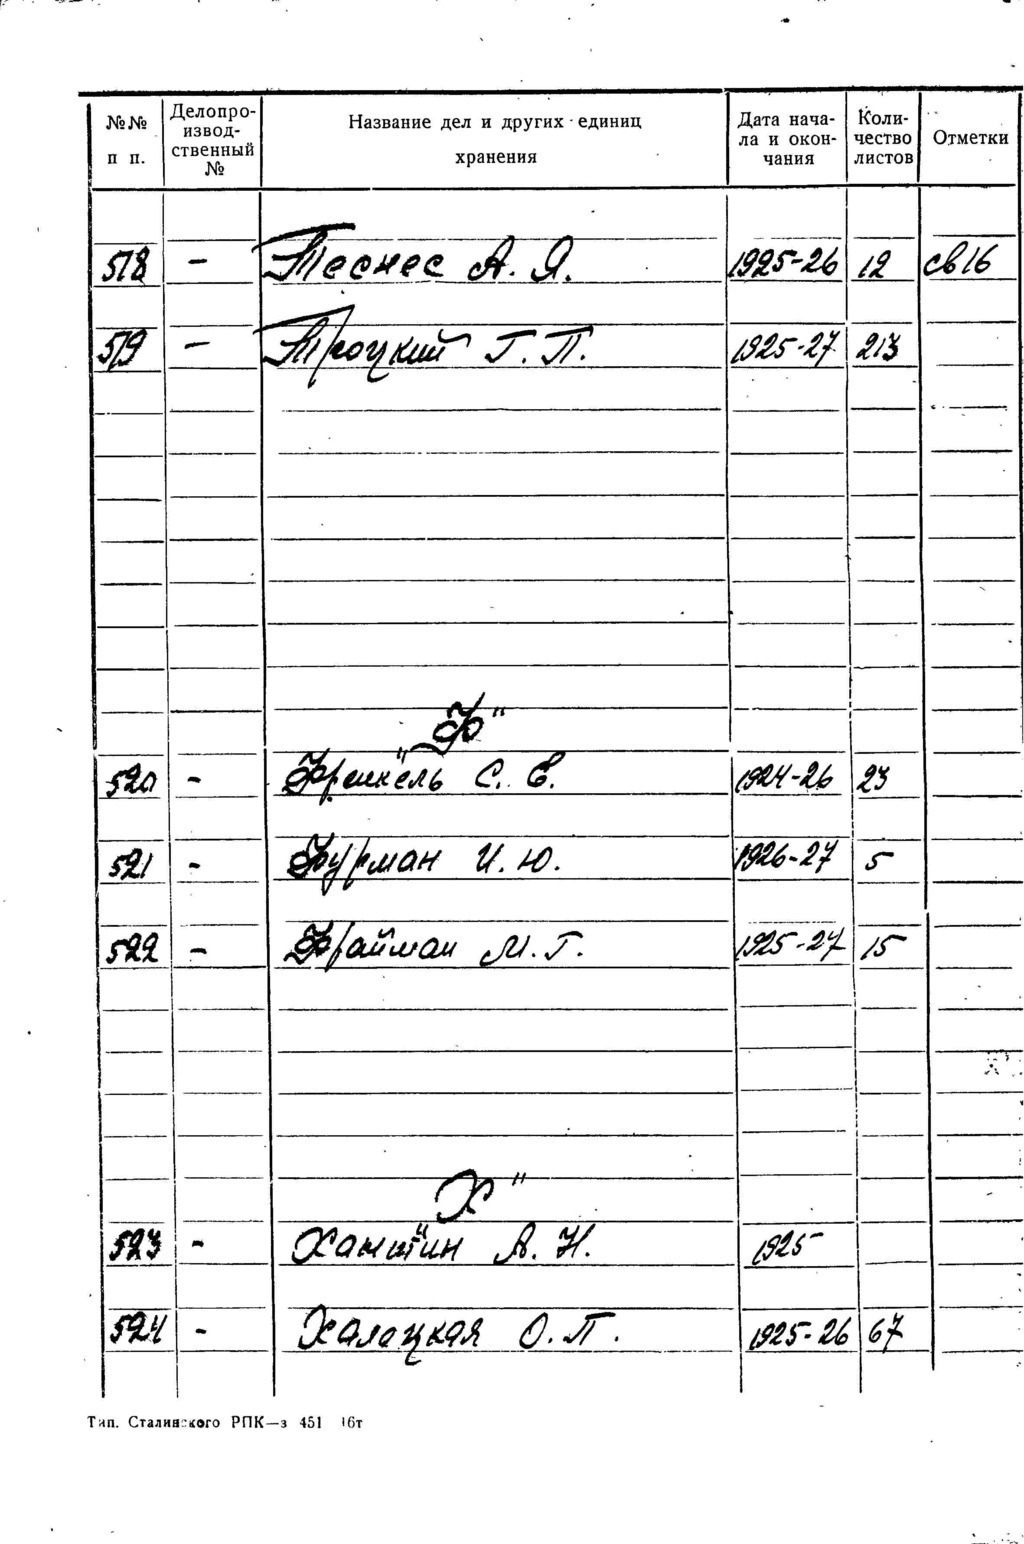 №№ п п. Делопроизводственный № Название дел и других единиц хранения Дата начала и окончания Количество листов Отметки
518 - Теснес А. Я. 1925-26 12 св16
519 - Троцкий Г. П. 1925-27 213
"Ф"
520 - Френкель С. Е. 1924-26 23
521 - Фурман И. Ю. 1926-27 5
522 - Файман М. Г. 1925-27 15
"Х"
523 - А. Н. 1925
524 - Халацкая О. П. 1925-26 67
Тип. Сталинского РПК—з 451 16т